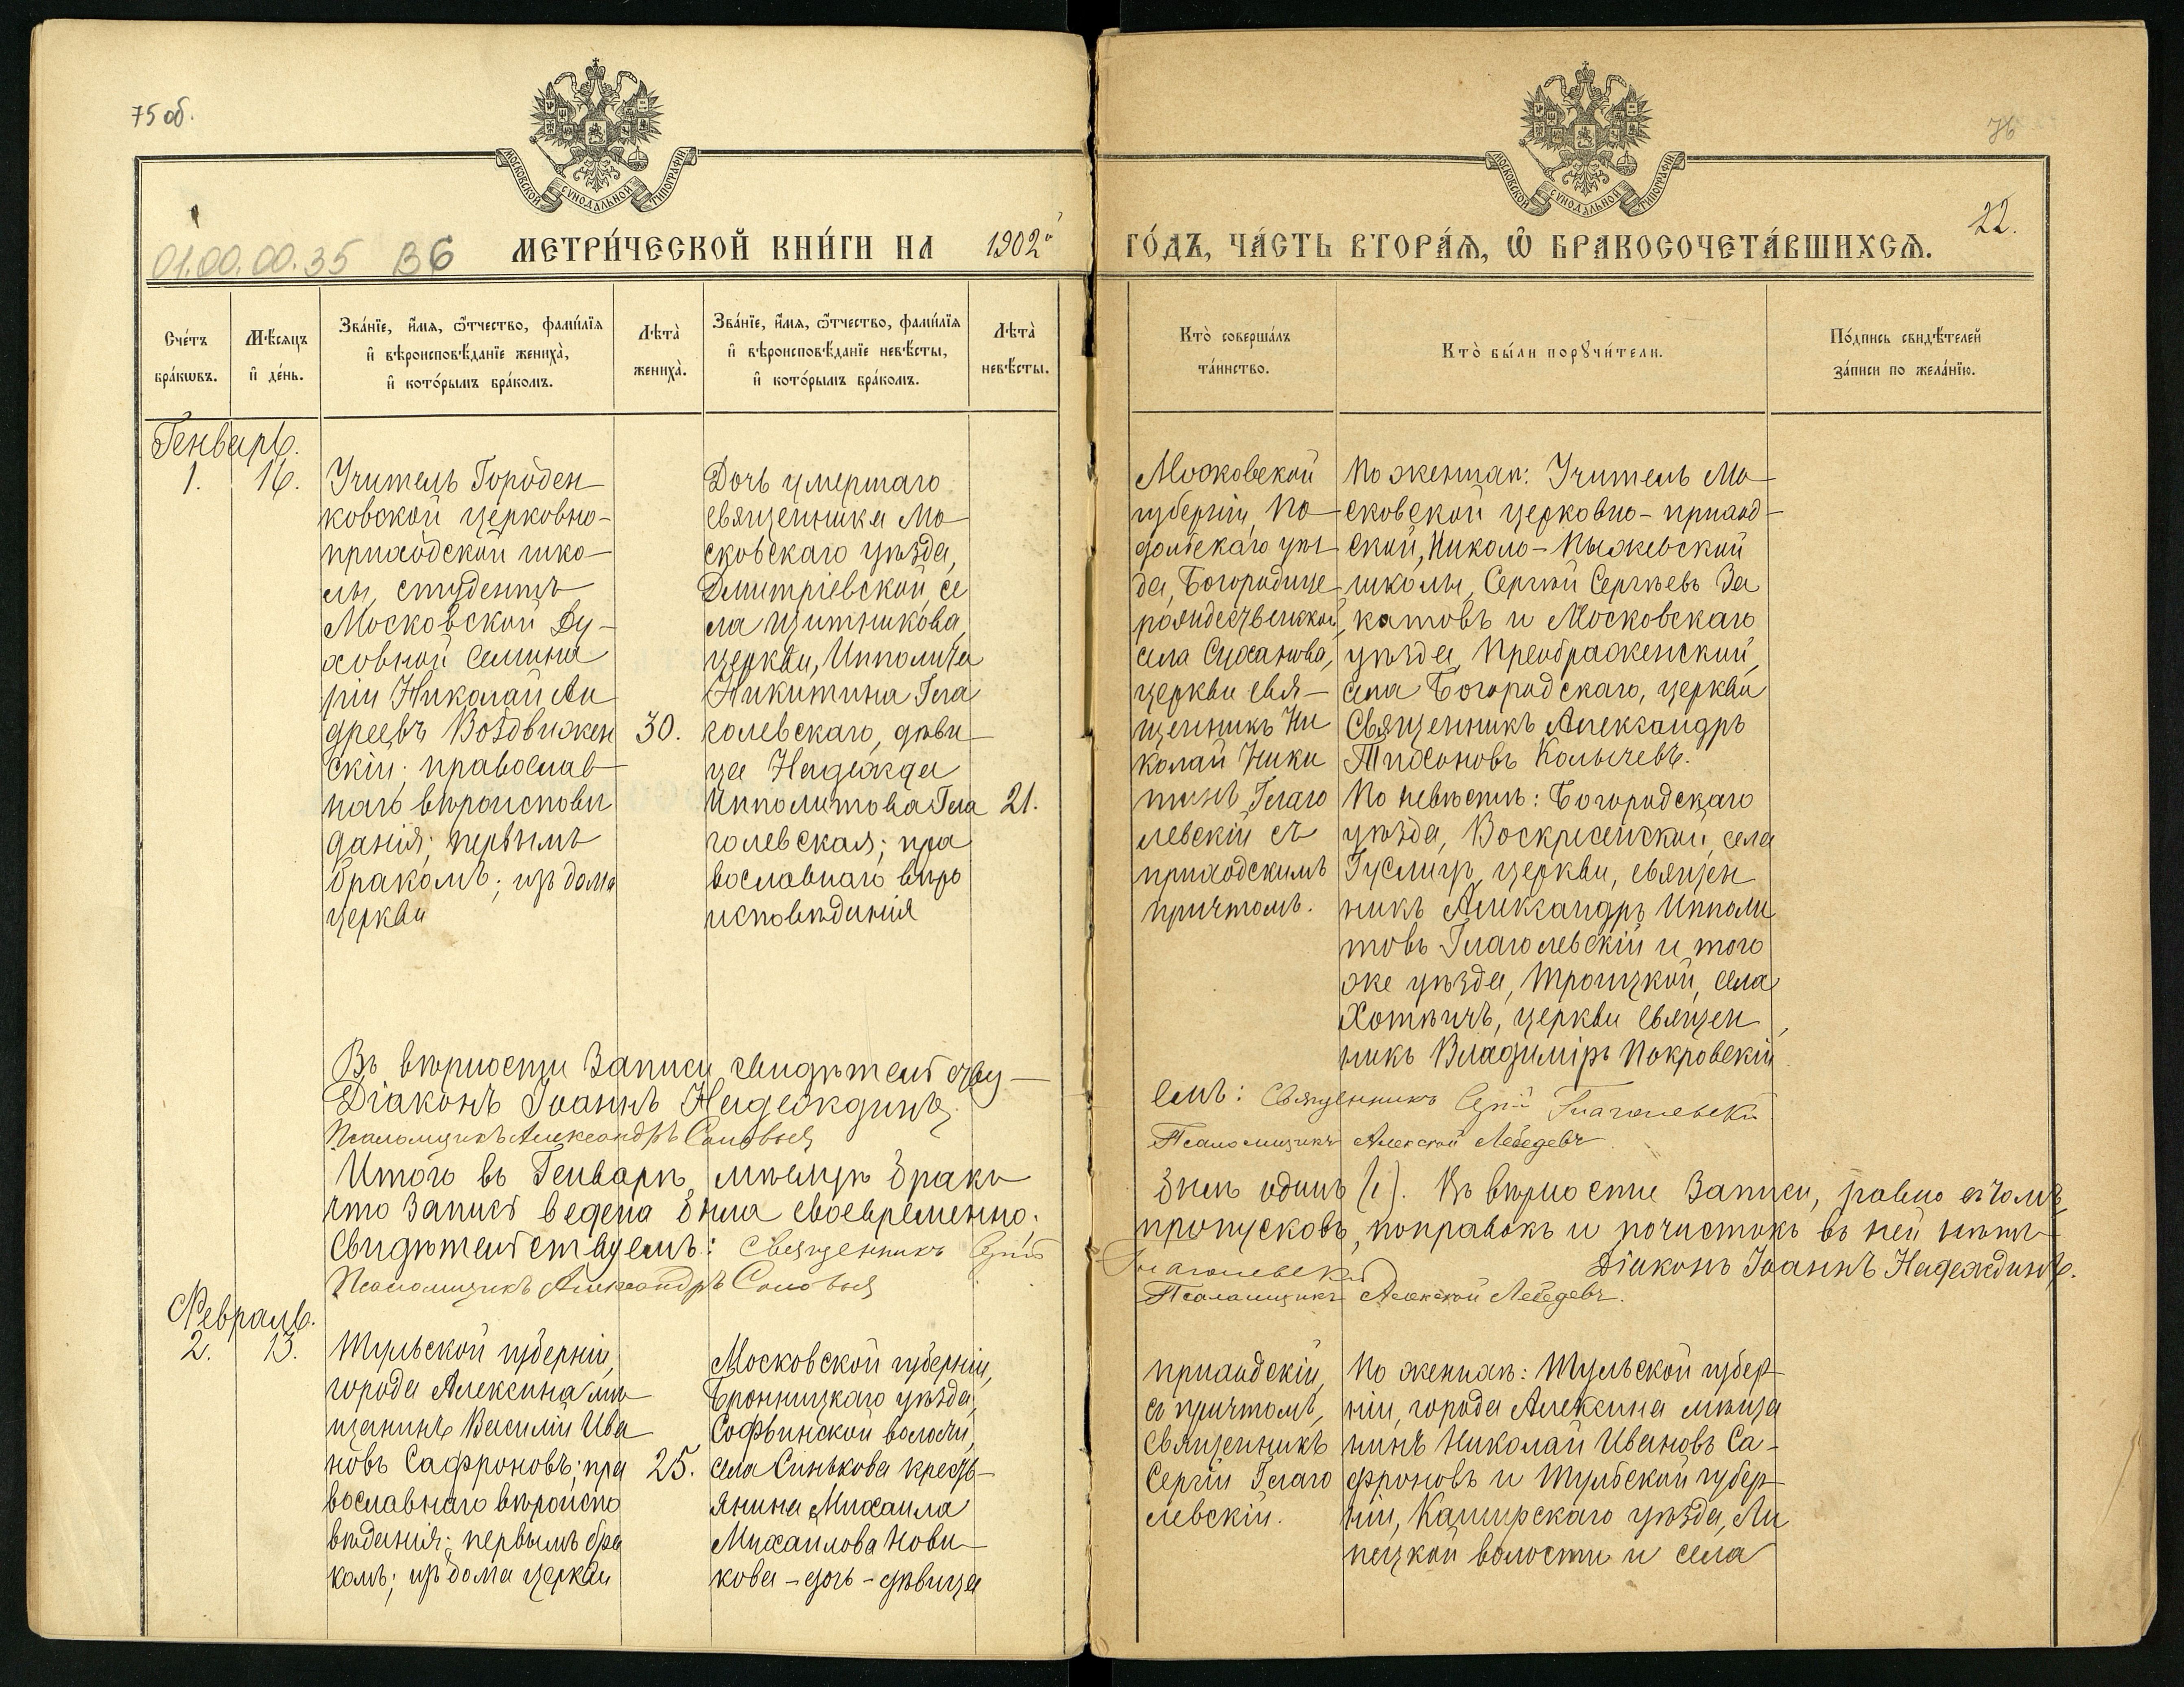 75 об.
76
МОСКОВСКОЙ СѴНОДАЛЬНОЙ ТИПОГРАФІИ
МОСКОВСКОЙ СѴНОДАЛЬНОЙ ТИПОГРАФІИ
22.
01.00.00.35 В6
МЕТРИ́ЧЕСКОЙ КНИ́ГИ НА 1902й ГО́ДЪ, ЧА́СТЬ ВТОРА́Ѧ, Ѽ БРАКОСОЧЕТА́ВШИХСѦ.
Сче́тъ
бра́кѡвъ.
Мѣ́сѧцъ
и҆ де́нь.
Зва́нїе, и҆́мѧ, ѻ҆́тчество, фами́лїѧ
и҆ вѣроисповѣ́данїе жениха̀,
и҆ кото́рымъ бра́комъ.
Лѣ́та̀
жениха̀.
Зва́нїе, и҆́мѧ, ѻ҆́тчество, фами́лїѧ
и҆ вѣроисповѣ́данїе невѣ́сты,
и҆ кото́рымъ бра́комъ.
Лѣ́та̀
невѣ́сты.
Кто̀ соверша́лъ
та́инство.
Кто̀ бы́ли порꙋчи́тели.
По́дпись свидѣ́телей
за́писи по жела́нїю.
Генварь.
1.
16.
Учитель Городен
ковской церковно-
приходской шко-
лы, студентъ
Московской Ду-
ховной Семина
ріи Николай Ан
дреевъ Воздвижен
скій; православ
наго вѣроисповѣ
данія; первымъ
бракомъ; изъ дома
церкви
30.
Дочь умершаго
священника Мо
сковскаго уѣзда,
Дмитріевской, се
ла Щитникова,
церкви, Ипполита
Никитина Гла
голевскаго, дѣви
ца Надежда
Ипполитова Гла
голевская; пра
вославнаго вѣро
исповѣданія
21.
Московской
губерніи, По
дольскаго уѣз
да, Богородице
рождественской,
села Суханова,
церкви свя-
щенникъ Ни
колай Ники
тинъ Глаго
левскій съ
приходскимъ
причтомъ.
По женихѣ: Учитель Мо
сковской церковно-приход-
ской, Николо-Пыжевской
школы, Сергѣй Сергѣевъ За
катовъ и Московскаго
уѣзда, Преображенской,
села Богородскаго, церкви
Священникъ Александръ
Тихоновъ Колычевъ.
По невѣстѣ: Богородскаго
уѣзда, Воскресенской, села
Гуслицъ, церкви, священ
никъ Александръ Ипполи
товъ Глаголевскій и того
же уѣзда, Троицкой, села
Хотѣичъ, церкви Священ
никъ Владиміръ Покровскій
Въ вѣрности Записи свидѣтельству-
емъ: Священникъ Сергій Глаголевскій
Діаконъ Іоаннъ Надеждинъ.
Псаломщикъ Александръ Соловьевъ
Псаломщикъ Алексѣй Лебедевъ
Итого въ Генварѣ мѣсяцѣ бракъ
былъ одинъ (1). Въ вѣрности Записи, равно въ томъ
что Запись ведена была своевременно;
пропусковъ, поправокъ и почистокъ въ ней нѣтъ
Свидѣтельствуемъ: Священникъ Сергій
Глаголевскій
Діаконъ Іоаннъ Надеждинъ.
Псаломщикъ Александръ Соловьевъ
Псаломщикъ Алексѣй Лебедевъ.
Февраль.
2.
13.
Тульской губерніи,
города Алексина мѣ
щанинъ Василій Ива
новъ Сафроновъ; пра
вославнаго вѣроиспо
вѣданія; первымъ бра
комъ; изъ дома церкви
25.
Московской губерніи,
Бронницкаго уѣзда,
Софьинской волости,
села Синькова кресть-
янина Михаила
Михаилова Нови-
кова - дочь - дѣвица
приходскій,
съ причтомъ,
Священникъ
Сергій Глаго
левскій.
По женихѣ: Тульской губер
ніи, города Алексина мѣща
нинъ Николай Ивановъ Са-
фроновъ и Тульской губер
ніи, Каширскаго уѣзда, Ли
пецкой волости и села